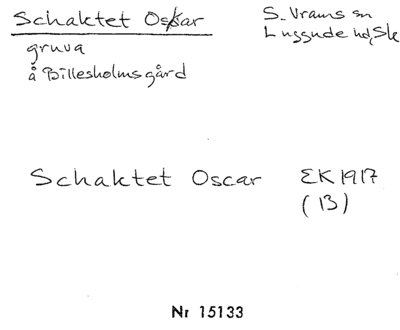 Schaktet Oskar
gruva
å Billesholmsgård
S. Vrams sn
Luggude hd, Sk
Schaktet Oscar EK 1917
(13)
Nr 15133